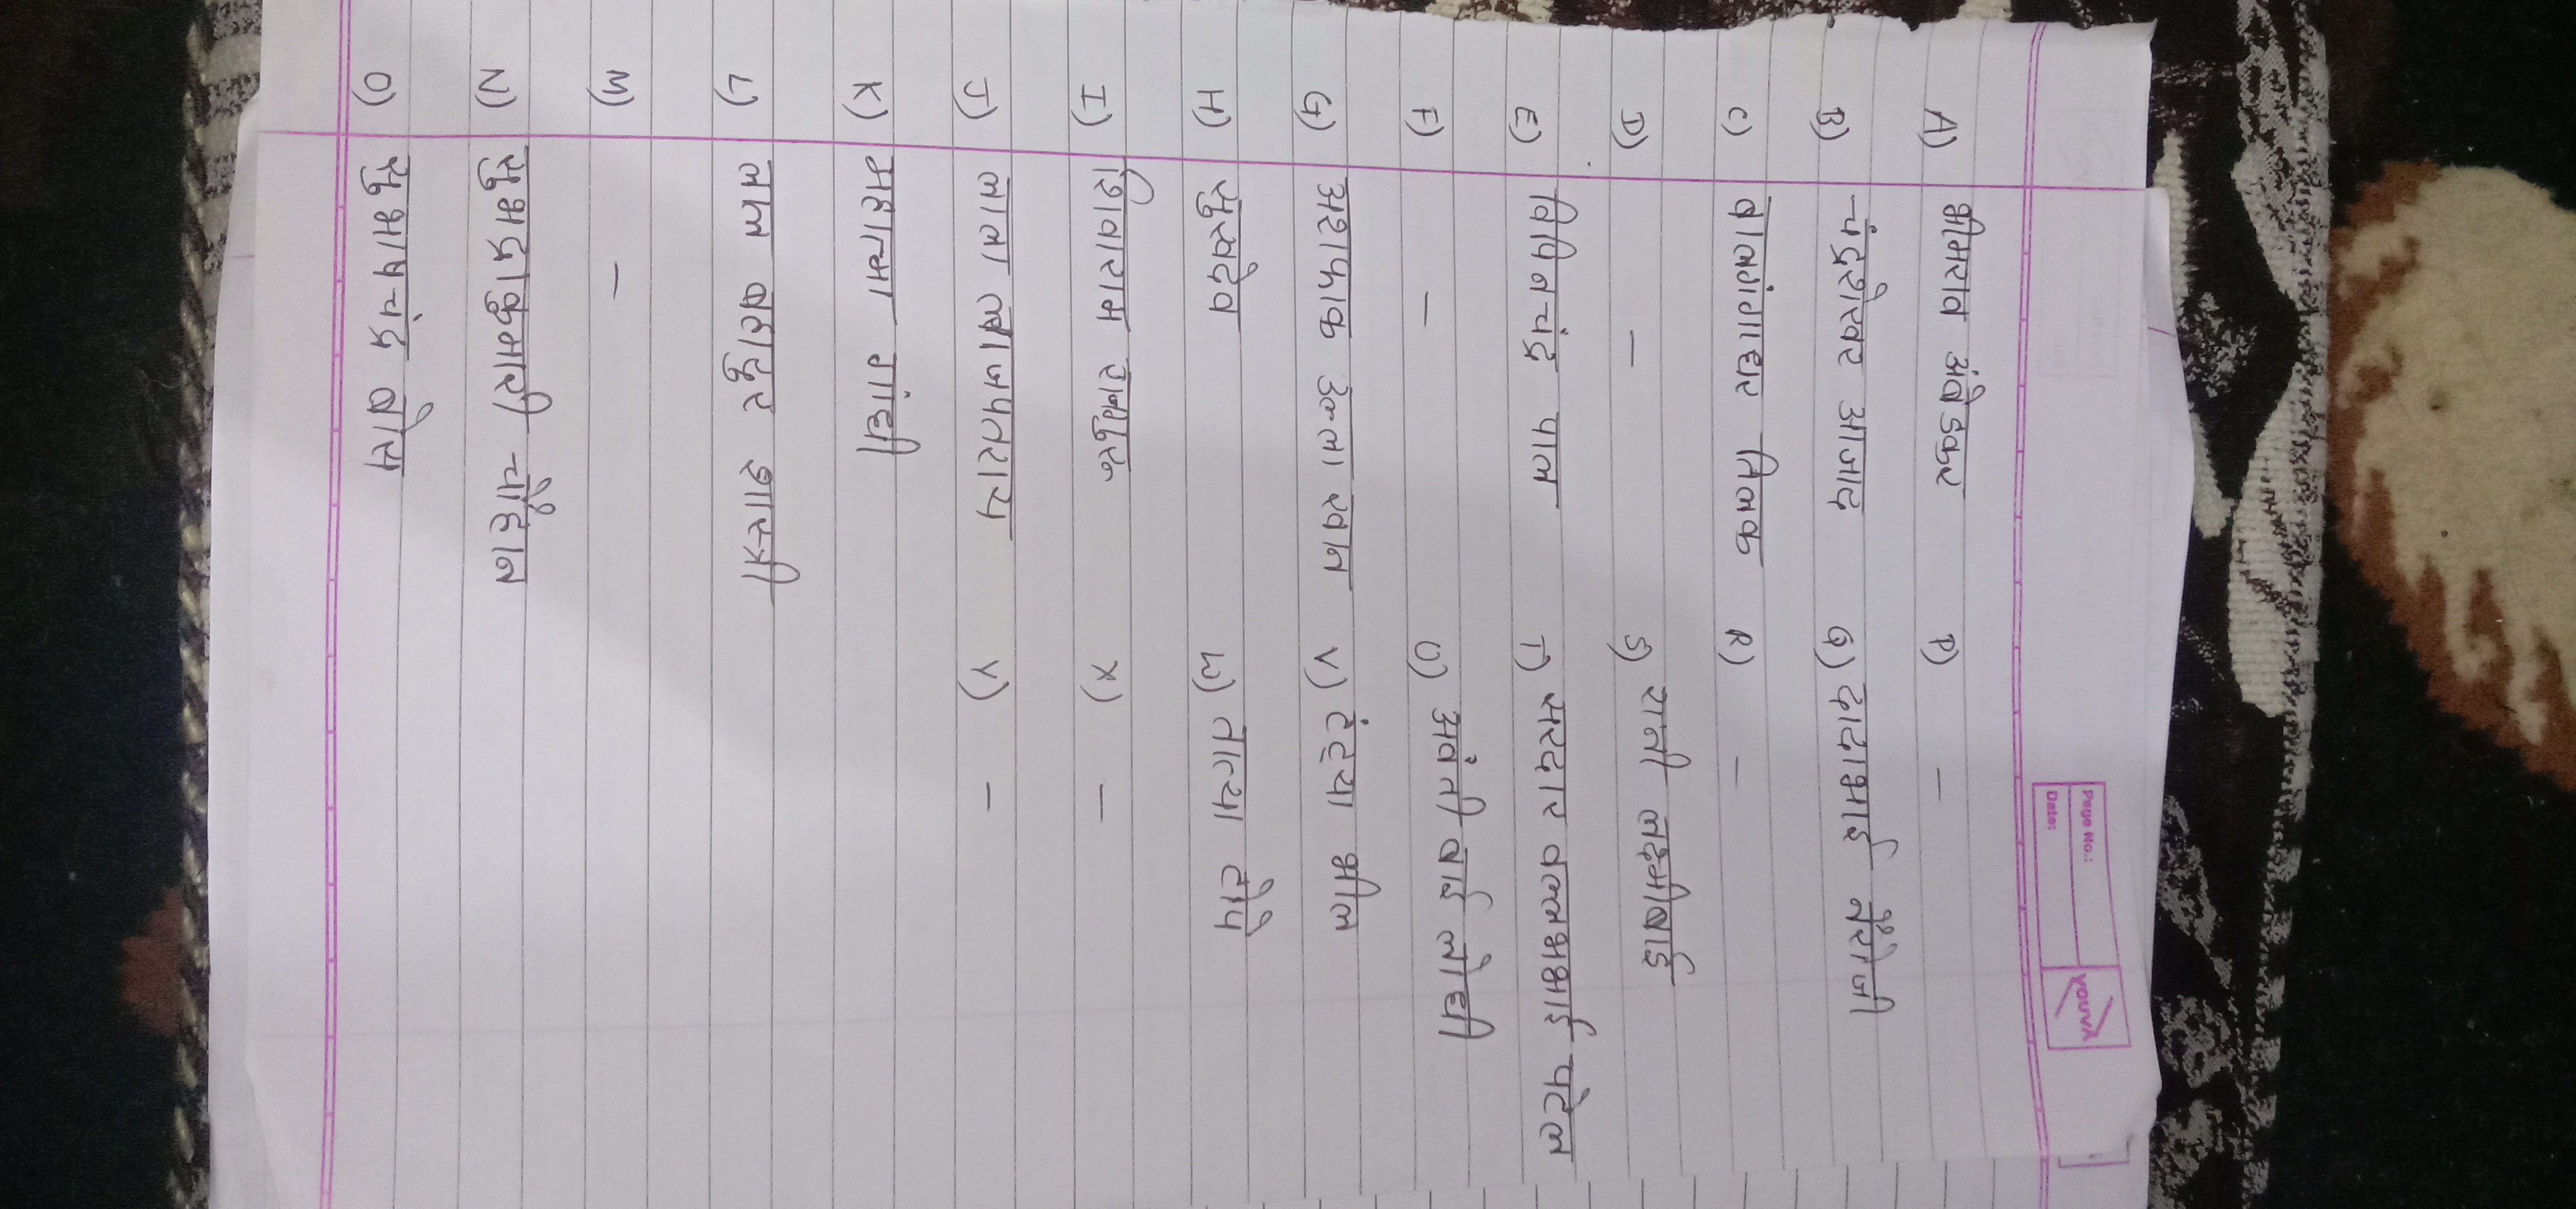 Page No.:
Date:
youva
A) भीमराव अंबेडकर P) -
B) चंद्रशेखर आजाद Q) दादाभाई नैरोजी
C) बालगंगाधर तिलक R) -
D) - S) रानी लक्ष्मीबाई
E) विपिनचंद्र पाल T) सरदार वल्लभभाई पटेल
F) - U) अवंती बाई लोधी
G) अशफाक उल्ला खान V) टंट्या भील
H) सुखदेव W) तात्या टोपे
I) शिवाराम राजगुरु X) -
J) लाला लाजपतराय Y) -
K) महात्मा गांधी
L) लाल बहादुर शास्त्री
M) -
N) सुभद्राकुमारी चौहान
O) सुभाषचंद्र बोस